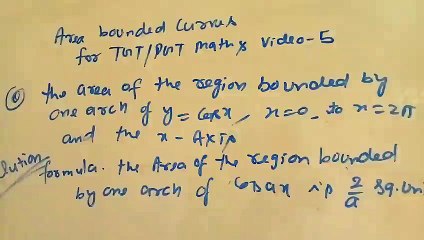 Area bounded curves
for TGT/PGT maths video-5
the area of the region bounded by
one arch of y = cosx, x=0, to x=2π
and the x-Axis
lution
formula. the Area of the region bounded
by one arch of cosax is 2/a sq.uni